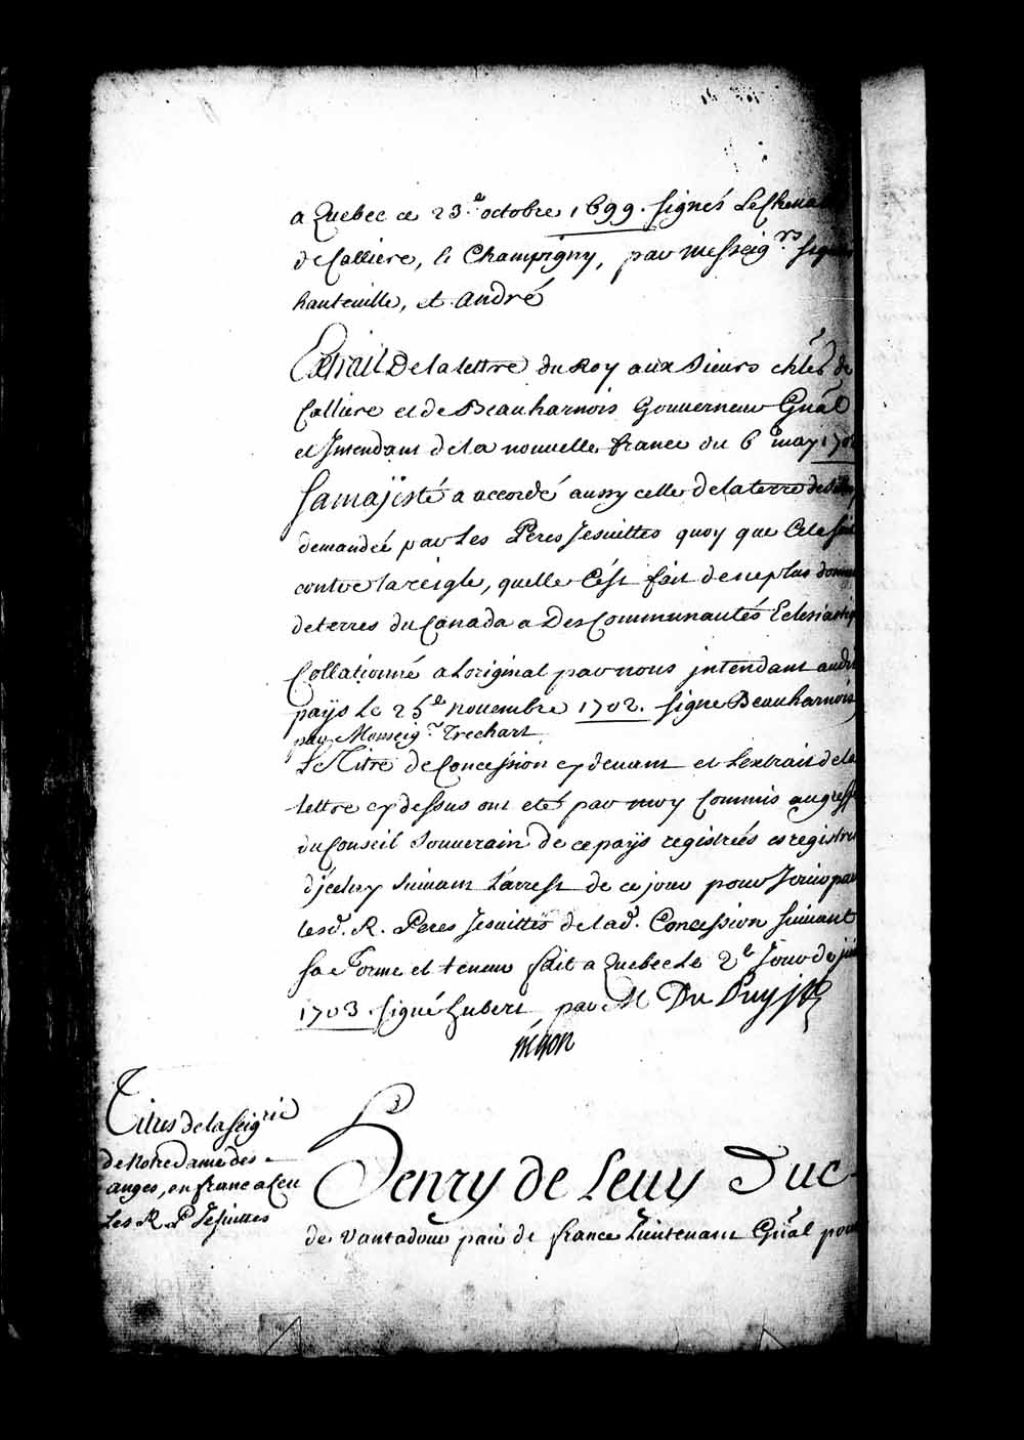 a Quebec ce 23.e octobre 1699. signés Le Cheva
de Calliere, le Champigny, par messeig.rs
hauteuille, et andré
Extrait De la lettre du Roy aux Sieurs chlēr de
Calliere et de Beauharnois Gouverneur Gnāl
et Jntendant de la nouuelle france du 6.e may 170
Samajesté a accordé aussy celle de la terre de
demandée par les Peres Jesuittes quoy que Cela soit
contre la reigle, quelle C'ést fait de ne plus donner
de terres du Canada a Des Communautés Eclesiastiq
Collationné a Loriginal par nous jntendant audit
païs le 25.e nouembre 1702. signe Beauharnois
par Monseig.r Trechart
Le Titre de Concession cy deuant et Lextrait de la
lettre cy dessus ont eté par moy Commis au greffe
du Conseil Souuerain de ce païs registrées es registre
d'jceluy suiuant L'arrest de ce jour pour Jouir par
lesd. R. Peres Jesuittes de lad. Concession suiuant
sa forme et teneur fait a Quebec le 2.e Jour de
1703. signé hubert par M Du Puy
Titres de la seig.rie
de Notre Dame des
anges, en franc aleu
Les R. P Jesuittes
Henry de Leuy Duc
de Vantadour pair de france Lieutenant Gnāl pour